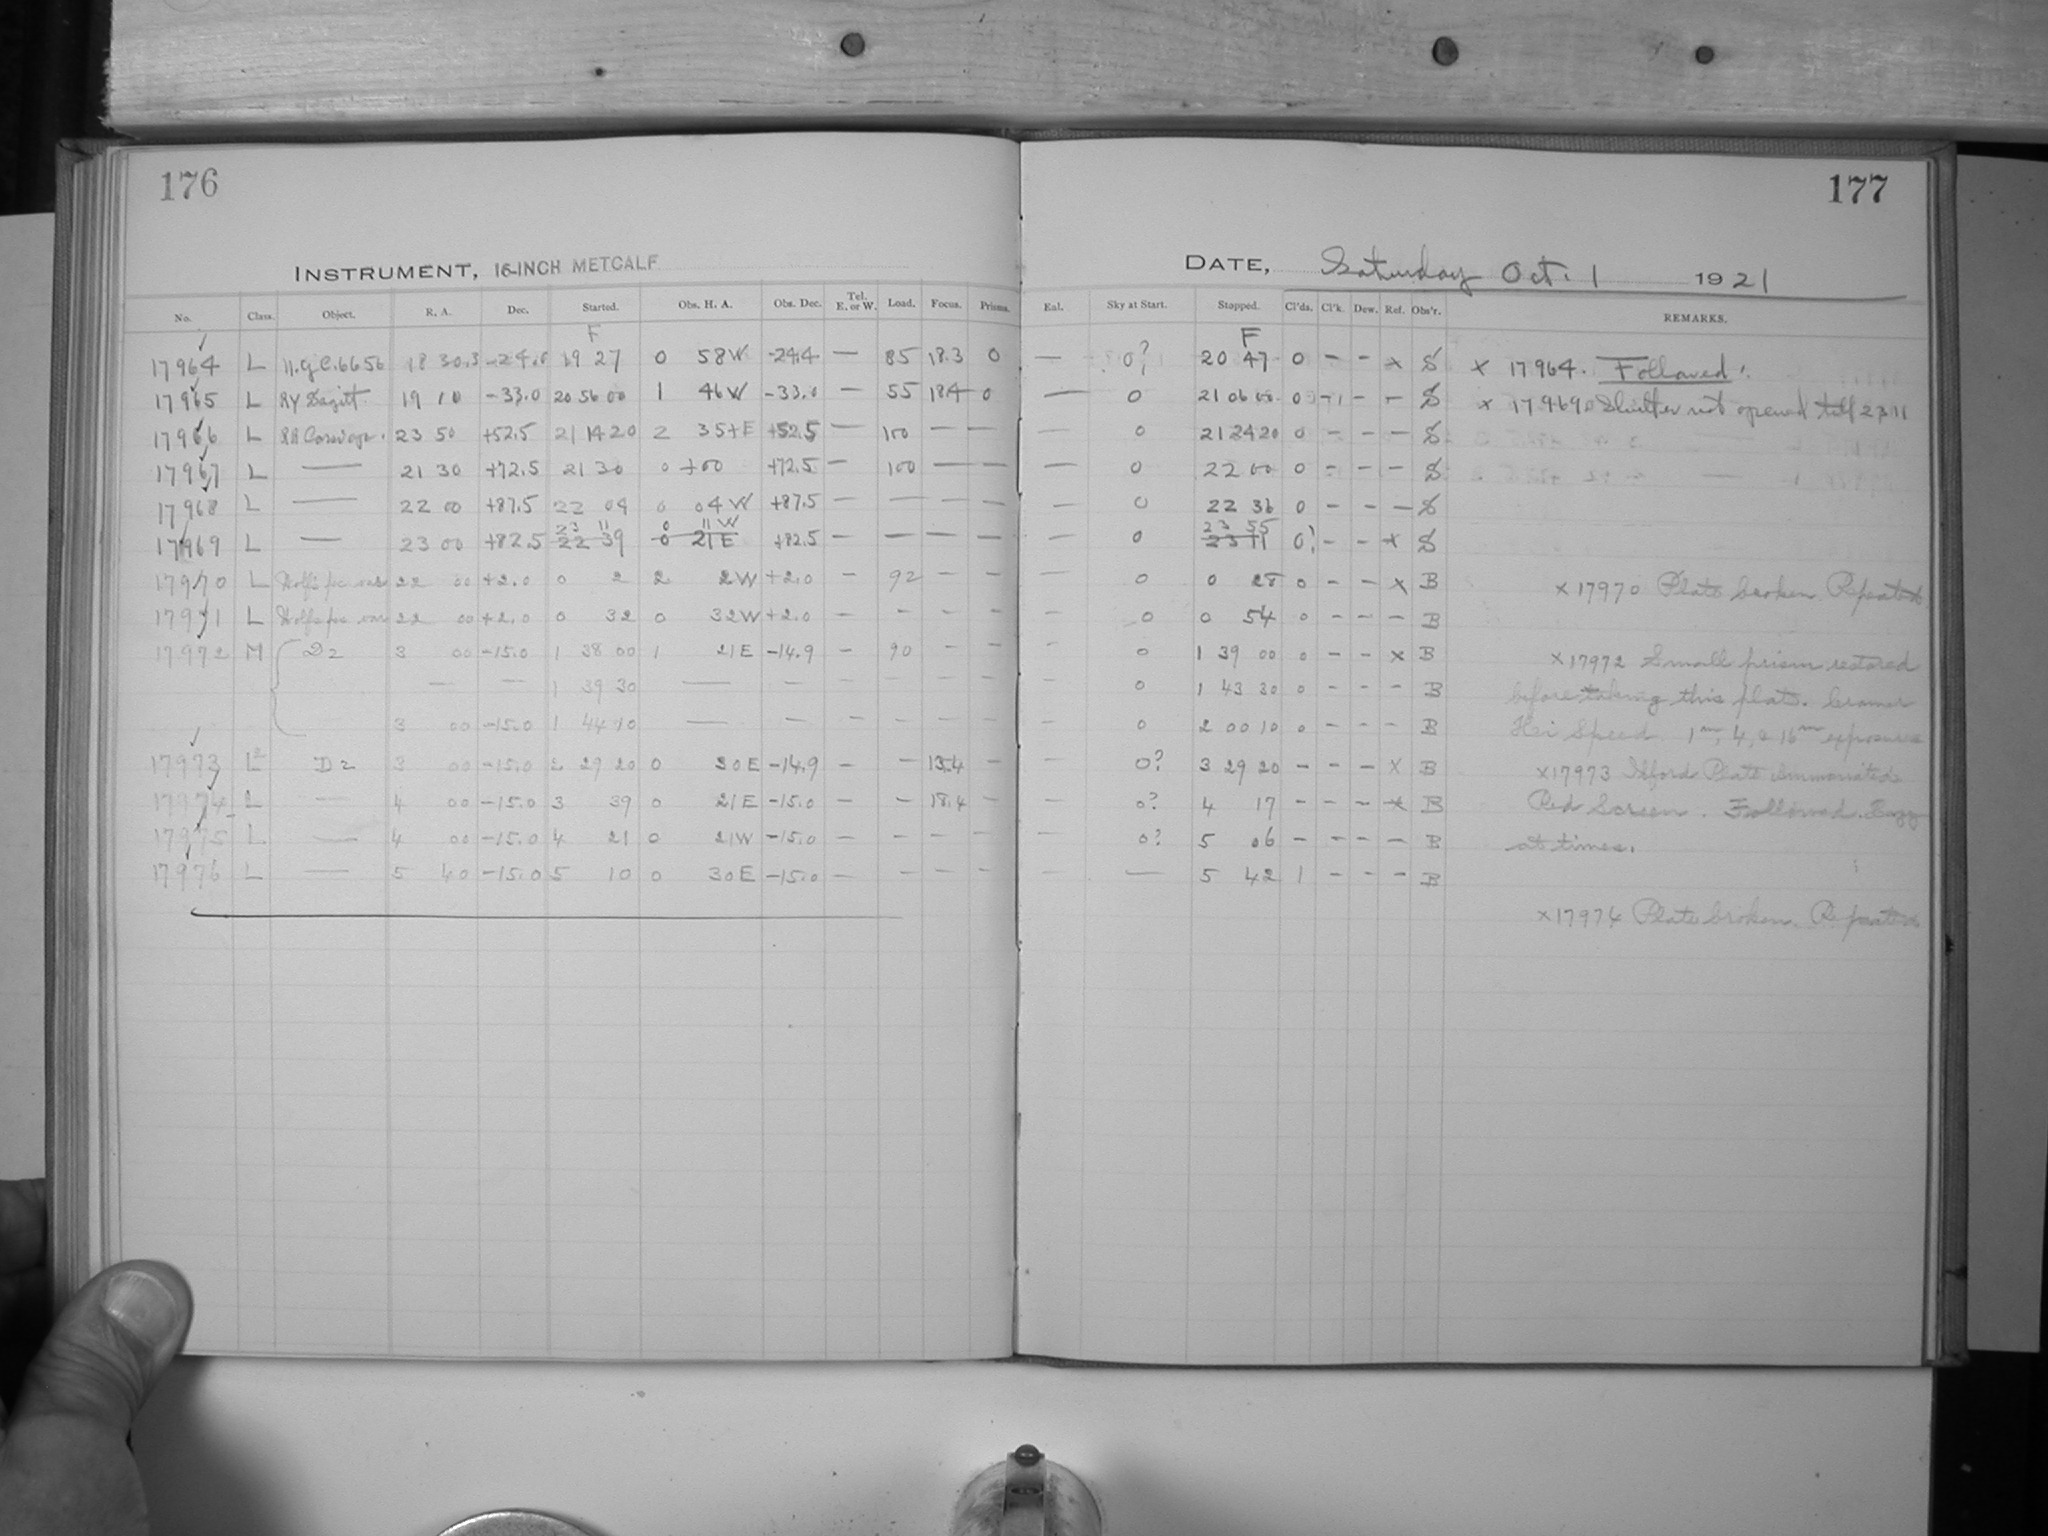 176
177
INSTRUMENT, 16-INCH METCALF
DATE, Saturday Oct. 1 1921
No. Class. Object. R. A. Dec. Started. Obs. H. A. Obs. Dec. Tel. E. or W. Load. Focus. Prisms.
Eal. Sky at Start. Stopped. Cl'ds. Cl'k. Dew. Ref. Obs'r. REMARKS.
F F
17964 L N.G.C. 6656 18 30.3 -24.0 19 27 0 58W -24.4 — 85 18.3 0 — 0? 20 47 0 - - x S x 17964. Followed!
17965 L RY Sagitt. 19 10 -33.0 20 56 00 1 46W -33.0 — 55 18.4 0 — 0 21 06 00 0 - - - S x 17969 Shutter not opened till 23 11
17966 L 23 50 +52.5 21 14 20 2 35+E +52.5 — 100 — — — 0 21 24 20 0 - - - S
17967 L — 21 30 +72.5 21 30 0 +00 +72.5 — 100 — — — 0 22 00 0 - - - S
17968 L — 22 00 +87.5 22 04 0 04W +87.5 — — — — — 0 22 36 0 - - — S
23 11 0 11W 23 55
17969 L — 23 00 +82.5 22 39 0 21E +82.5 — — — — — 0 23 11 0? - - x S
17970 L 22 00 +2.0 0 2 2 2W +2.0 - 92 - - — 0 0 28 0 - - x B x17970 Plate broken Repeated
17971 L 22 00 +2.0 0 32 0 32W +2.0 - - - - — 0 0 54 0 - - - B
17972 M D2 3 00 -15.0 1 38 00 1 21E -14.9 - 90 - - - 0 1 39 00 0 - - x B x17972 Small prism restored
— — 1 39 30 — - - - - - - 0 1 43 30 0 - - - B before taking this plate. Cramer
3 00 -15.0 1 44 10 — - - - - - - 0 2 00 10 0 - - - B Hi Speed 1m, 4, & 16m exposures
17973 L D2 3 00 -15.0 2 29 20 0 30E -14.9 - - 13.4 - 0? 3 29 20 - - - x B x17973 Ilford Plate Ammoniated
17974 L — 4 00 -15.0 3 39 0 21E -15.0 - - 18.4 - - 0? 4 17 - - - x B Red Screen. Followed.
17975 L — 4 00 -15.0 4 21 0 21W -15.0 - - - - — 0? 5 06 - - - - B at times.
17976 L — 5 40 -15.0 5 10 0 30E -15.0 - - - - - — 5 42 1 - - - B
x17974 Plate broken. Repeated